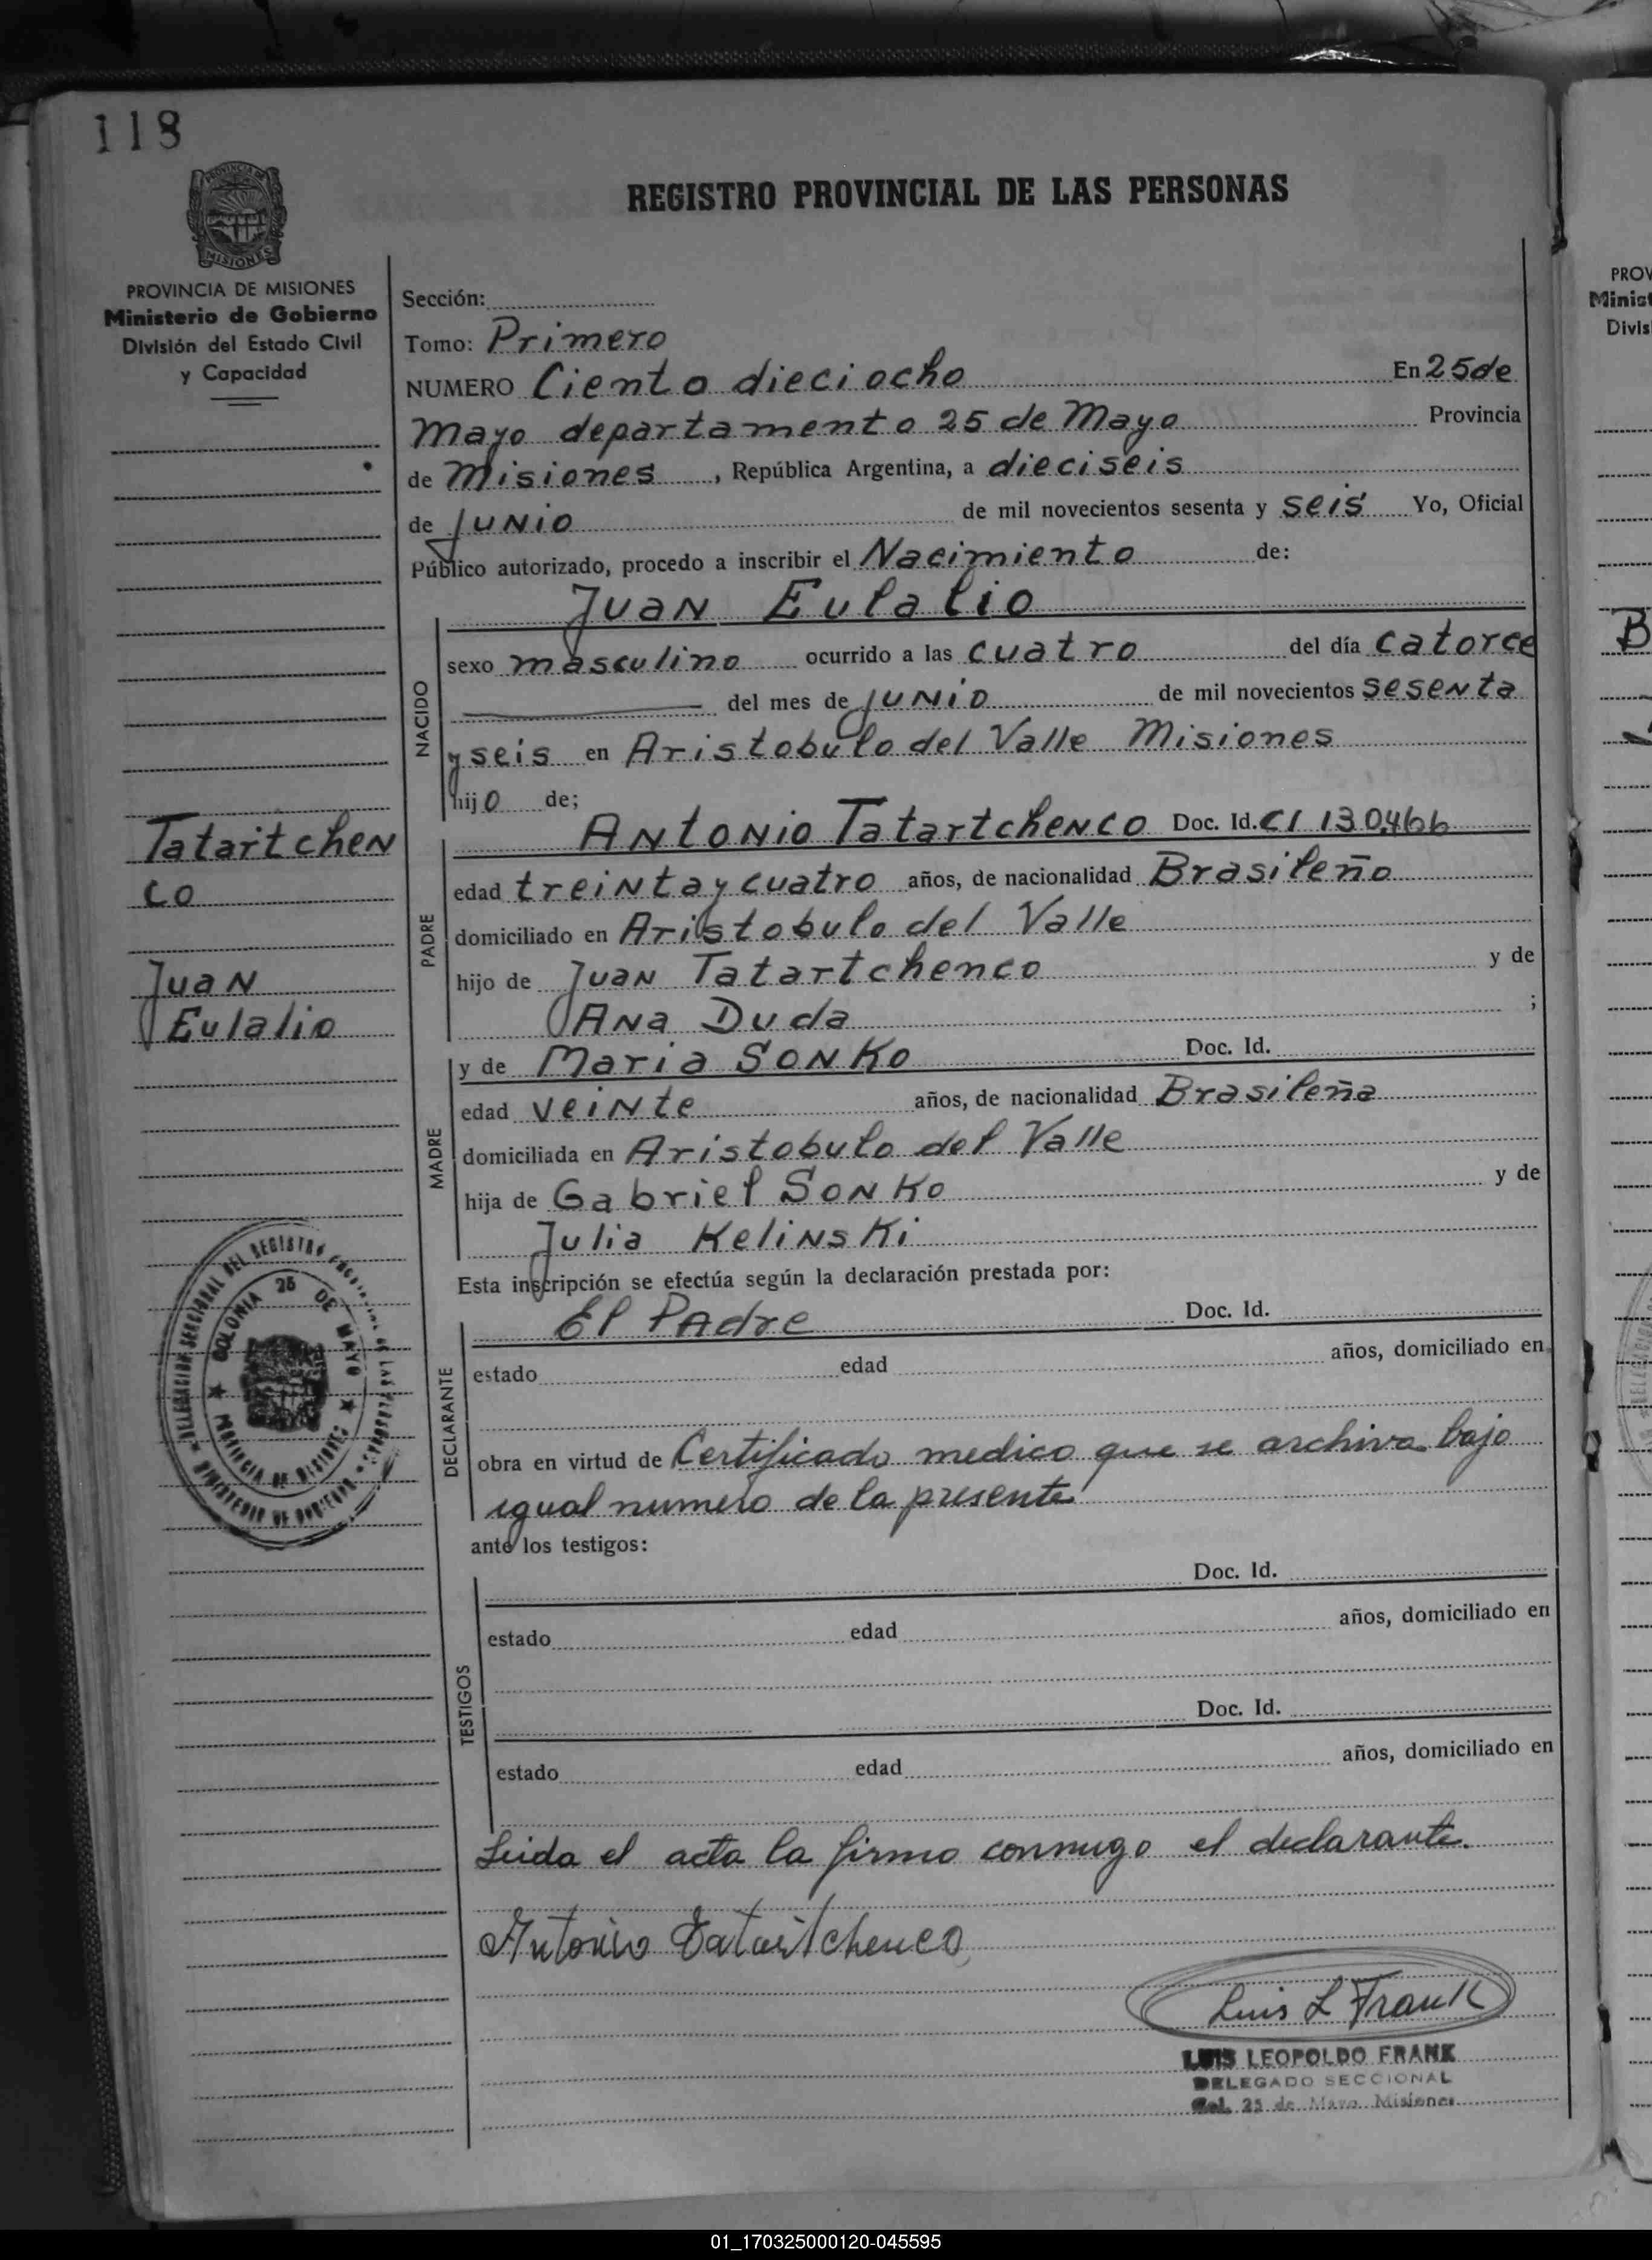 118
PROVINCIA DE
MISIONES
REGISTRO PROVINCIAL DE LAS PERSONAS
PROVINCIA DE MISIONES
Ministerio de Gobierno
División del Estado Civil
y Capacidad
Sección:
Tomo: Primero
NUMERO Ciento dieciocho En 25 de
Mayo departamento 25 de Mayo Provincia
de Misiones, República Argentina, a dieciseis
de Junio de mil novecientos sesenta y seis Yo, Oficial
Público autorizado, procedo a inscribir el Nacimiento de:
Juan Eulalio
NACIDO
sexo masculino ocurrido a las cuatro del día catorce
del mes de Junio de mil novecientos sesenta
y seis en Aristobulo del Valle Misiones
hijo de;
Tatartchen
co
Juan
Eulalio
PADRE
Antonio Tatartchenco Doc. Id. CI 130466
edad treinta y cuatro años, de nacionalidad Brasileño
domiciliado en Aristobulo del Valle
hijo de Juan Tatartchenco y de
Ana Duda ;
MADRE
y de Maria Sonko Doc. Id.
edad veinte años, de nacionalidad Brasileña
domiciliada en Aristobulo del Valle
hija de Gabriel Sonko y de
Julia Kelinski
Esta inscripción se efectúa según la declaración prestada por:
DECLARANTE
El Padre Doc. Id.
estado edad años, domiciliado en
obra en virtud de Certificado medico que se archiva bajo
igual numero de la presente
ante los testigos:
TESTIGOS
Doc. Id.
estado edad años, domiciliado en
Doc. Id.
estado edad años, domiciliado en
Leida el acta la firma conmigo el declarante.
Antonio Tatartchenco
Luis L Frank
LUIS LEOPOLDO FRANK
DELEGADO SECCIONAL
Col. 25 de Mayo Misiones
DELEGACION SECCIONAL DEL REGISTRO PROVINCIAL DE LAS PERSONAS
MINISTERIO DE GOBIERNO
COLONIA 25 DE MAYO
PROVINCIA DE MISIONES
PROV
Minist
Divis
B
01_170325000120-045595